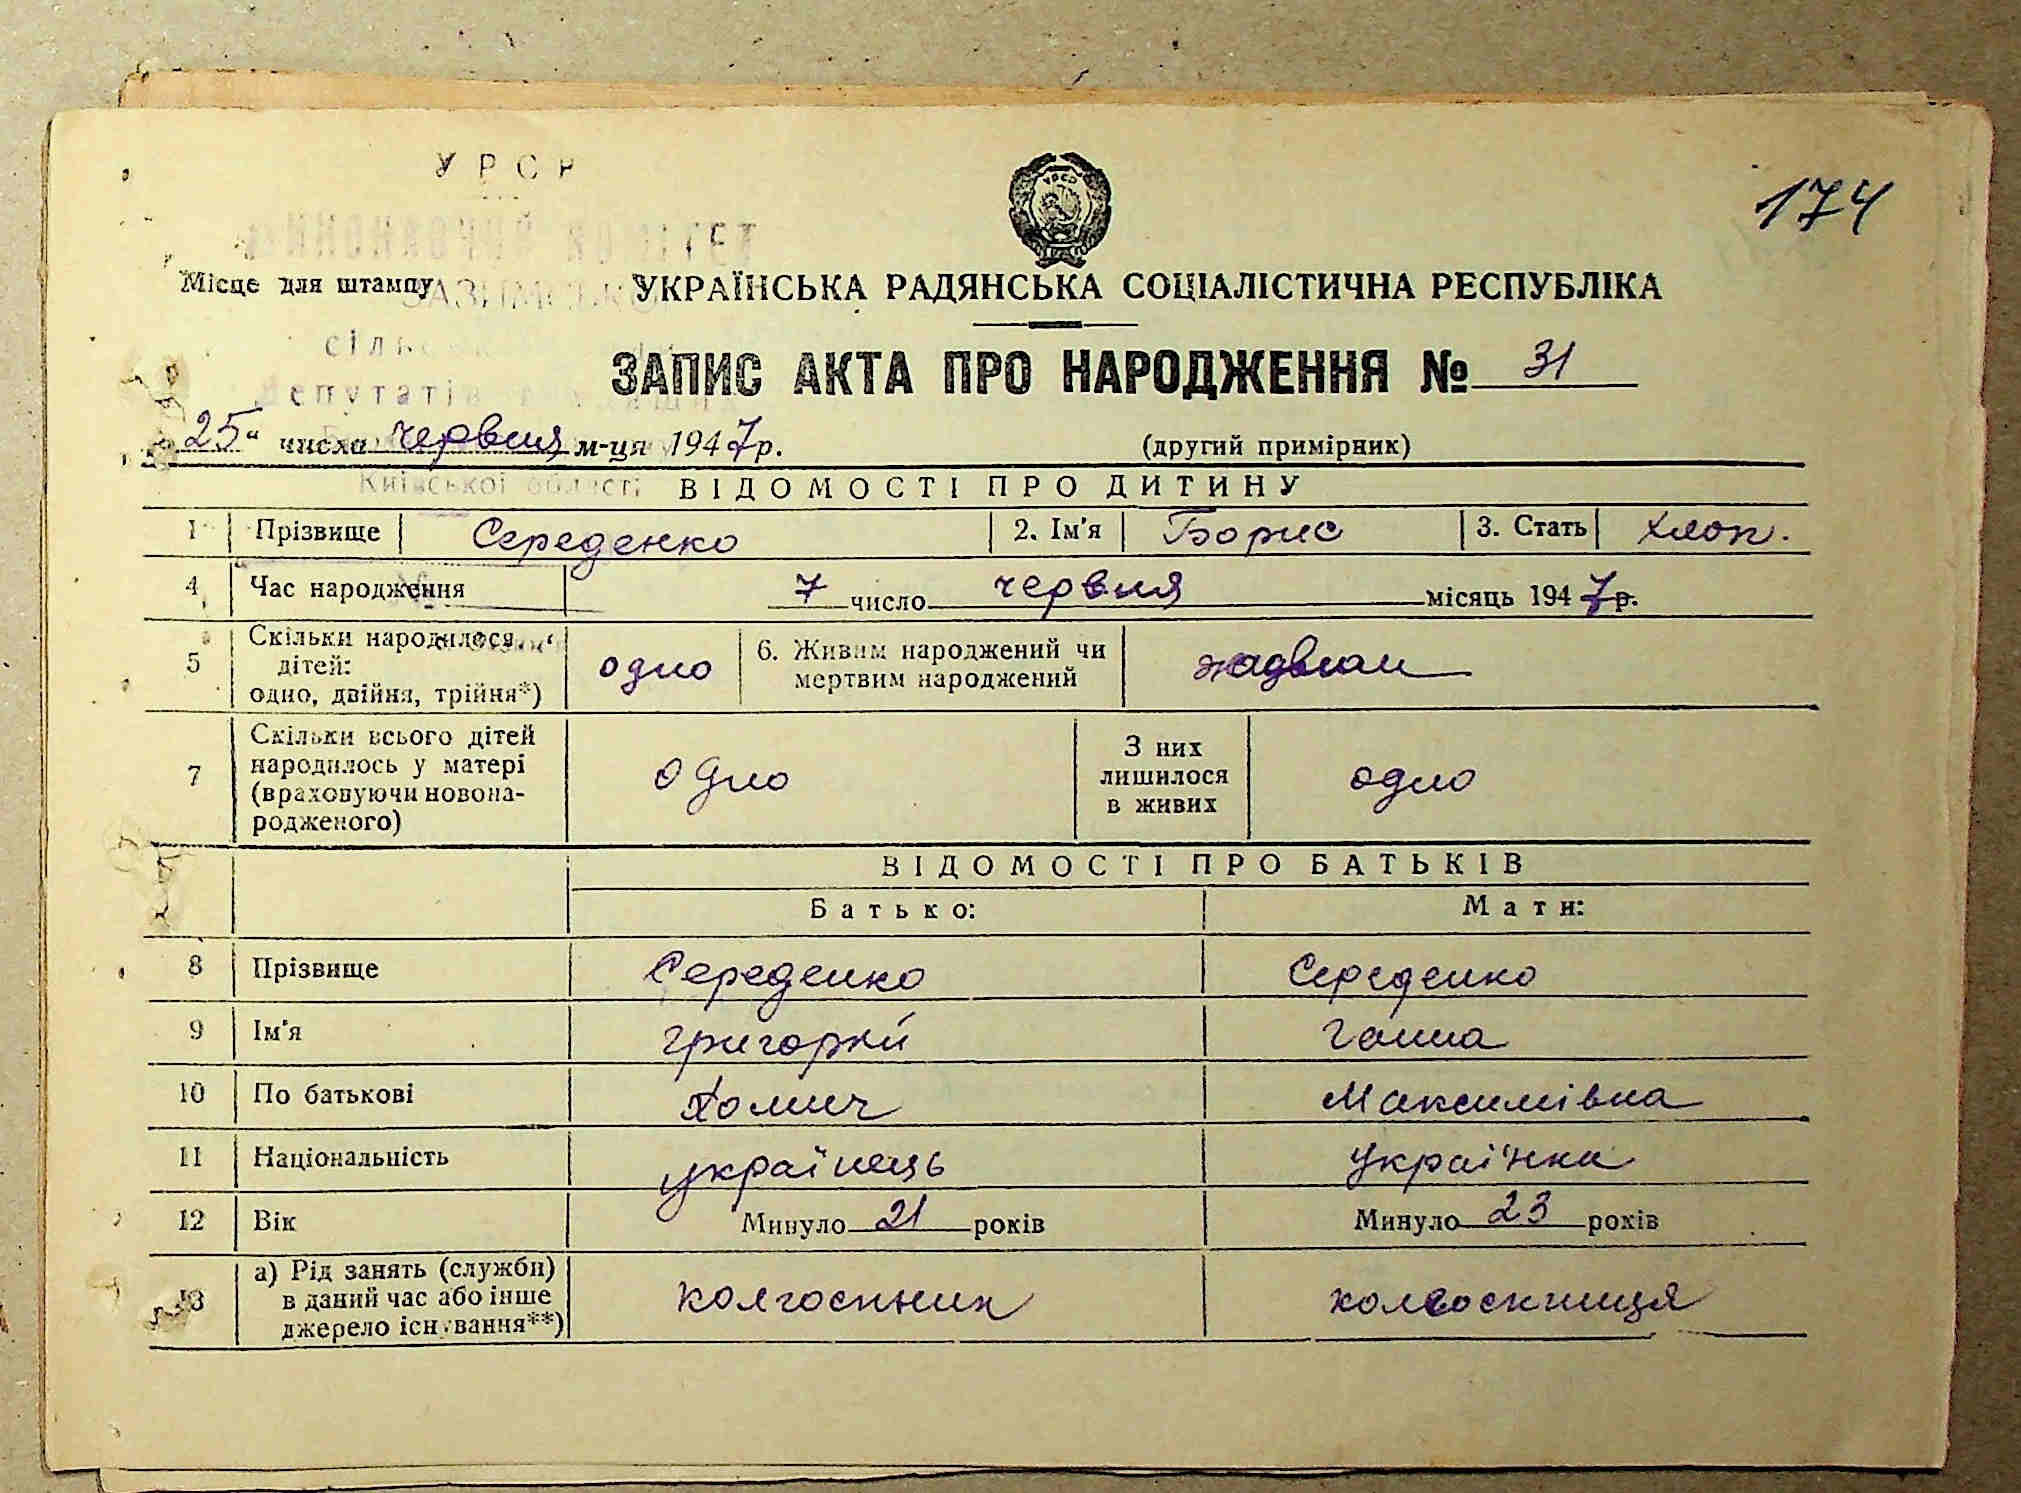 УРСР
174
ВИКОНАВЧИЙ КОМІТЕТ
Місце для штампу
УКРАЇНСЬКА РАДЯНСЬКА СОЦІАЛІСТИЧНА РЕСПУБЛІКА
ЗАПИС АКТА ПРО НАРОДЖЕННЯ № 31
депутатів
25 " числа червня м-ця 1947р.
(другий примірник)
Київської області
ВІДОМОСТІ ПРО ДИТИНУ
1 Прізвище Середенко 2. Ім'я Борис 3. Стать хлоп.
4 Час народження 7 число червня місяць 1947р.
5 Скільки народилося дітей: одно, двійня, трійня*) одно 6. Живим народжений чи мертвим народжений
7 Скільки всього дітей народилось у матері (враховуючи новонародженого) одно З них лишилося в живих одно
ВІДОМОСТІ ПРО БАТЬКІВ
Батько: Мати:
8 Прізвище Середенко Середенко
9 Ім'я Григорий Ганна
10 По батькові Хомич Максимівна
11 Національність українець українка
12 Вік Минуло 21 років Минуло 23 років
13 а) Рід занять (служби) в даний час або інше джерело існування**) колгосник колгоспниця